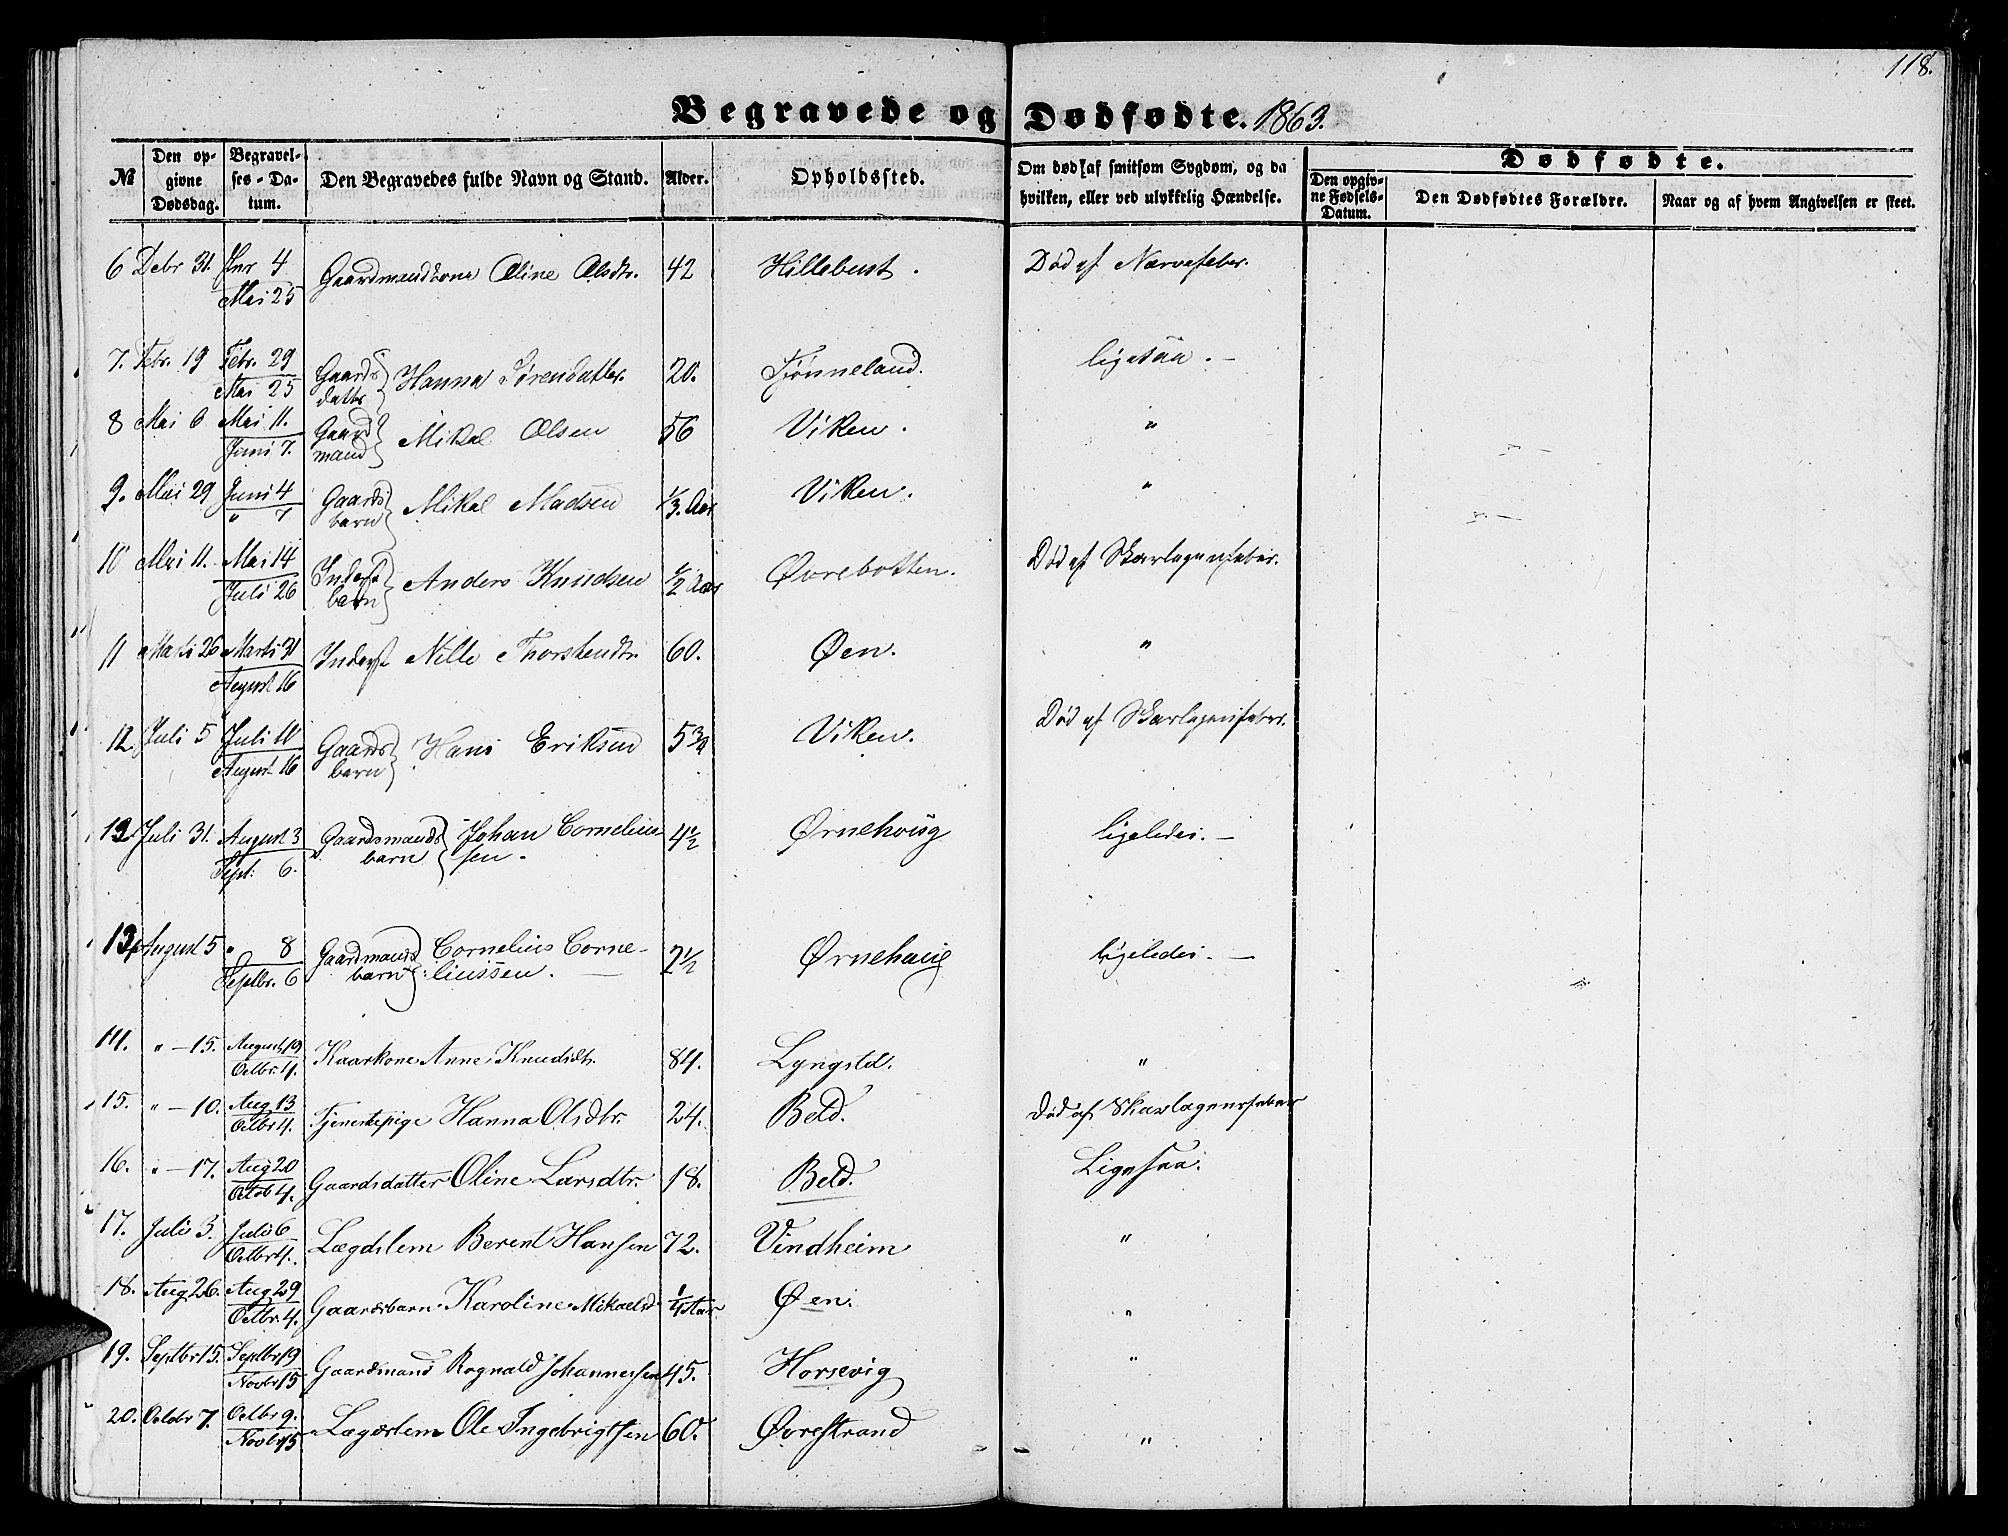 118.
Begravede og Dødfødte. 1863.
№ Den opgivne Dødsdag. Begravelses-Datum. Den Begravedes fulde Navn og Stand. Alder. Opholdssted. Om død af smitsom Sygdom, og da hvilken, eller ved ulykkelig Hændelse. Dødfødte. Den opgivne Fødsels-Datum. Den Dødfødtes Forældre. Naar og af hvem Angivelsen er skeet.
6 Debr 31. Jnr 4 Gaardmandkone Oline Olsdtr. 42 Hillebust. Død af Nervefeber.
Mai 25
7. Febr. 19 Febr. 29 Gaards datter Hanna Sørendatter. 20. Tjønneland. ligesaa. –
Mai 25
8 Mai 6 Mai 11. Gaard mand Mikal Olsen 56 Viken. "
Juni 7.
9. Mai 29 Juni 4 Gaards barn Mikal Madsen 1/3. Aar Viken. "
" 7
10 Mai 11. Mai 14 Inderst barn Anders Knudsen 1/2 Aar Øvrebotten. Død af Skarlagensfeber.
Juli 26
11 Marts 26 Marts 31 Inderst Nille Thorstendtr. 60. Øen. "
August 16
12 Juli 5 Juli 11 Gaards barn Hans Eriksen 5 3/4 Viken. Død af Skarlagensfeber.
August 16
12 Juli 31. August 3 Gaardsmands barn Johan Cornelius 4 1/2 Ørnehoug ligeledes. –
Sept: 6. sen.
13 August 5 " 8 Gaardmands barn Cornelius Corne- 2 1/2 Ørnehaug ligeledes. –
Septbr. 6 liussen.
14. " – 15. August 19 Kaarkone Anne Knudsdtr. 84. Lyngstd. "
Octbr. 4.
15. " – 10. Aug 13 Tjenestepige Hanna Olsdtr. 24. Beld. Død af Skarlagensfeber
Octbr 4.
16. " – 17. Aug 20 Gaardsdatter Oline Larsdtr. 18. Beld. Ligesaa.
Octob 4.
17. Juli 3. Juli 6 Lægdslem Berent Hansen 72. Vindheim "
Octbr 4.
18. Aug 26. Aug 29 Gaardsbarn Karoline Mikaelsd 1/4 Aar Øen. "
Octbr. 4.
19. Septbr 15. Septbr 19 Gaardmand Rognald Johannessen 45. Horsevig "
Novbr 15
20. Octobr 7. Octbr 9. Lægdslem Ole Ingebrigtsen 60. Øvrestrand "
Novbr 15